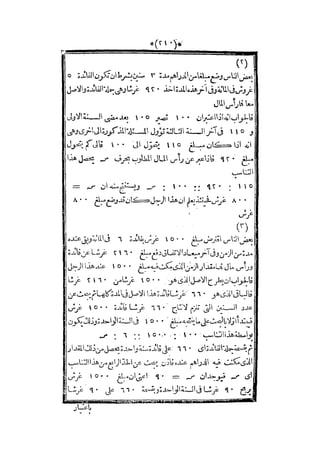 *(٢١٠)*
(٢)
بعض الناس وضع مبلغا من الدراهم مدة ٣ سنين بشرط ان تكون الفائدة ٥
غروش فى المائة وفى آخر هذه المدة اخذ ٩٢٠ غرشا وهى جملة الفائدة والاصل
معا فما رأس المال
فالجواب انه اذا اعتبران ١٠٠ تصير ١٠٥ بعد مضى السنة الاولى
و ١١٥ فى آخر السنة الثالثة تؤول المسئلة المذكورة الى اخرى وهى
انه اذا كان مبلغ ١١٥ يتحول الى ١٠٠ فالى كم يتحول
مبلغ ٩٢٠ فاذا عبر عن رأس المال المطلوب بحرف سہ يحصل هذا
التناسب
١١٥ : ٩٢٠ :: ١٠٠ : سہ ويستنتج منه ان سہ =
٨٠٠ غرش فحينئذ يعلم ان هذا الرجل كان قد وضع مبلغ ٨٠٠
غرش
(٣)
بعض الناس اقترض مبلغ ١٥٠٠ غرش بفائدة ٦ فى المائة وبقى عنده
مدة من الزمن وفى آخر ميعاد الاتفاق دفع مبلغ ٢١٦٠ غرشا عن فائدة
ورأس مال فما مقدار الزمن الذى مكث فيه مبلغ ١٥٠٠ عند هذا الرجل
فالجواب ان يطرح الاصل الذى هو ١٥٠٠ غرشا من ٢١٦٠ غرشا
فالباقى الذى هو ٦٦٠ غرشا فائدة هذا الاصل فى المدة كلها ثم يبحث عن
عدد السنين التى تلزم لانتاج ٦٦٠ غرشا فائدة ١٥٠٠ غرش
فيبتدأ اولا بالبحث على ما يخصه مبلغ ١٥٠٠ فى السنة الواحدة وذلك يكون
بواسطة هذا التناسب ١٠٠ : ١٥٠٠ :: ٦ : سہ
ثم بقسمة جملة الفائدة اى ٦٦٠ على فائدة سنة واحدة يحصل من ذلك المقدار
الذى مكثت فيه الدراهم عنده فاذن يبحث عن الحد الرابع من هذا التناسب
اى سہ فيوجد ان سہ = ٩٠ اعنى ان مبلغ ١٥٠٠ غرش
يربح ٩٠ غرشا فى السنة الواحدة وبقسمة ٦٦٠ على ٩٠ غرشا
باعتبار